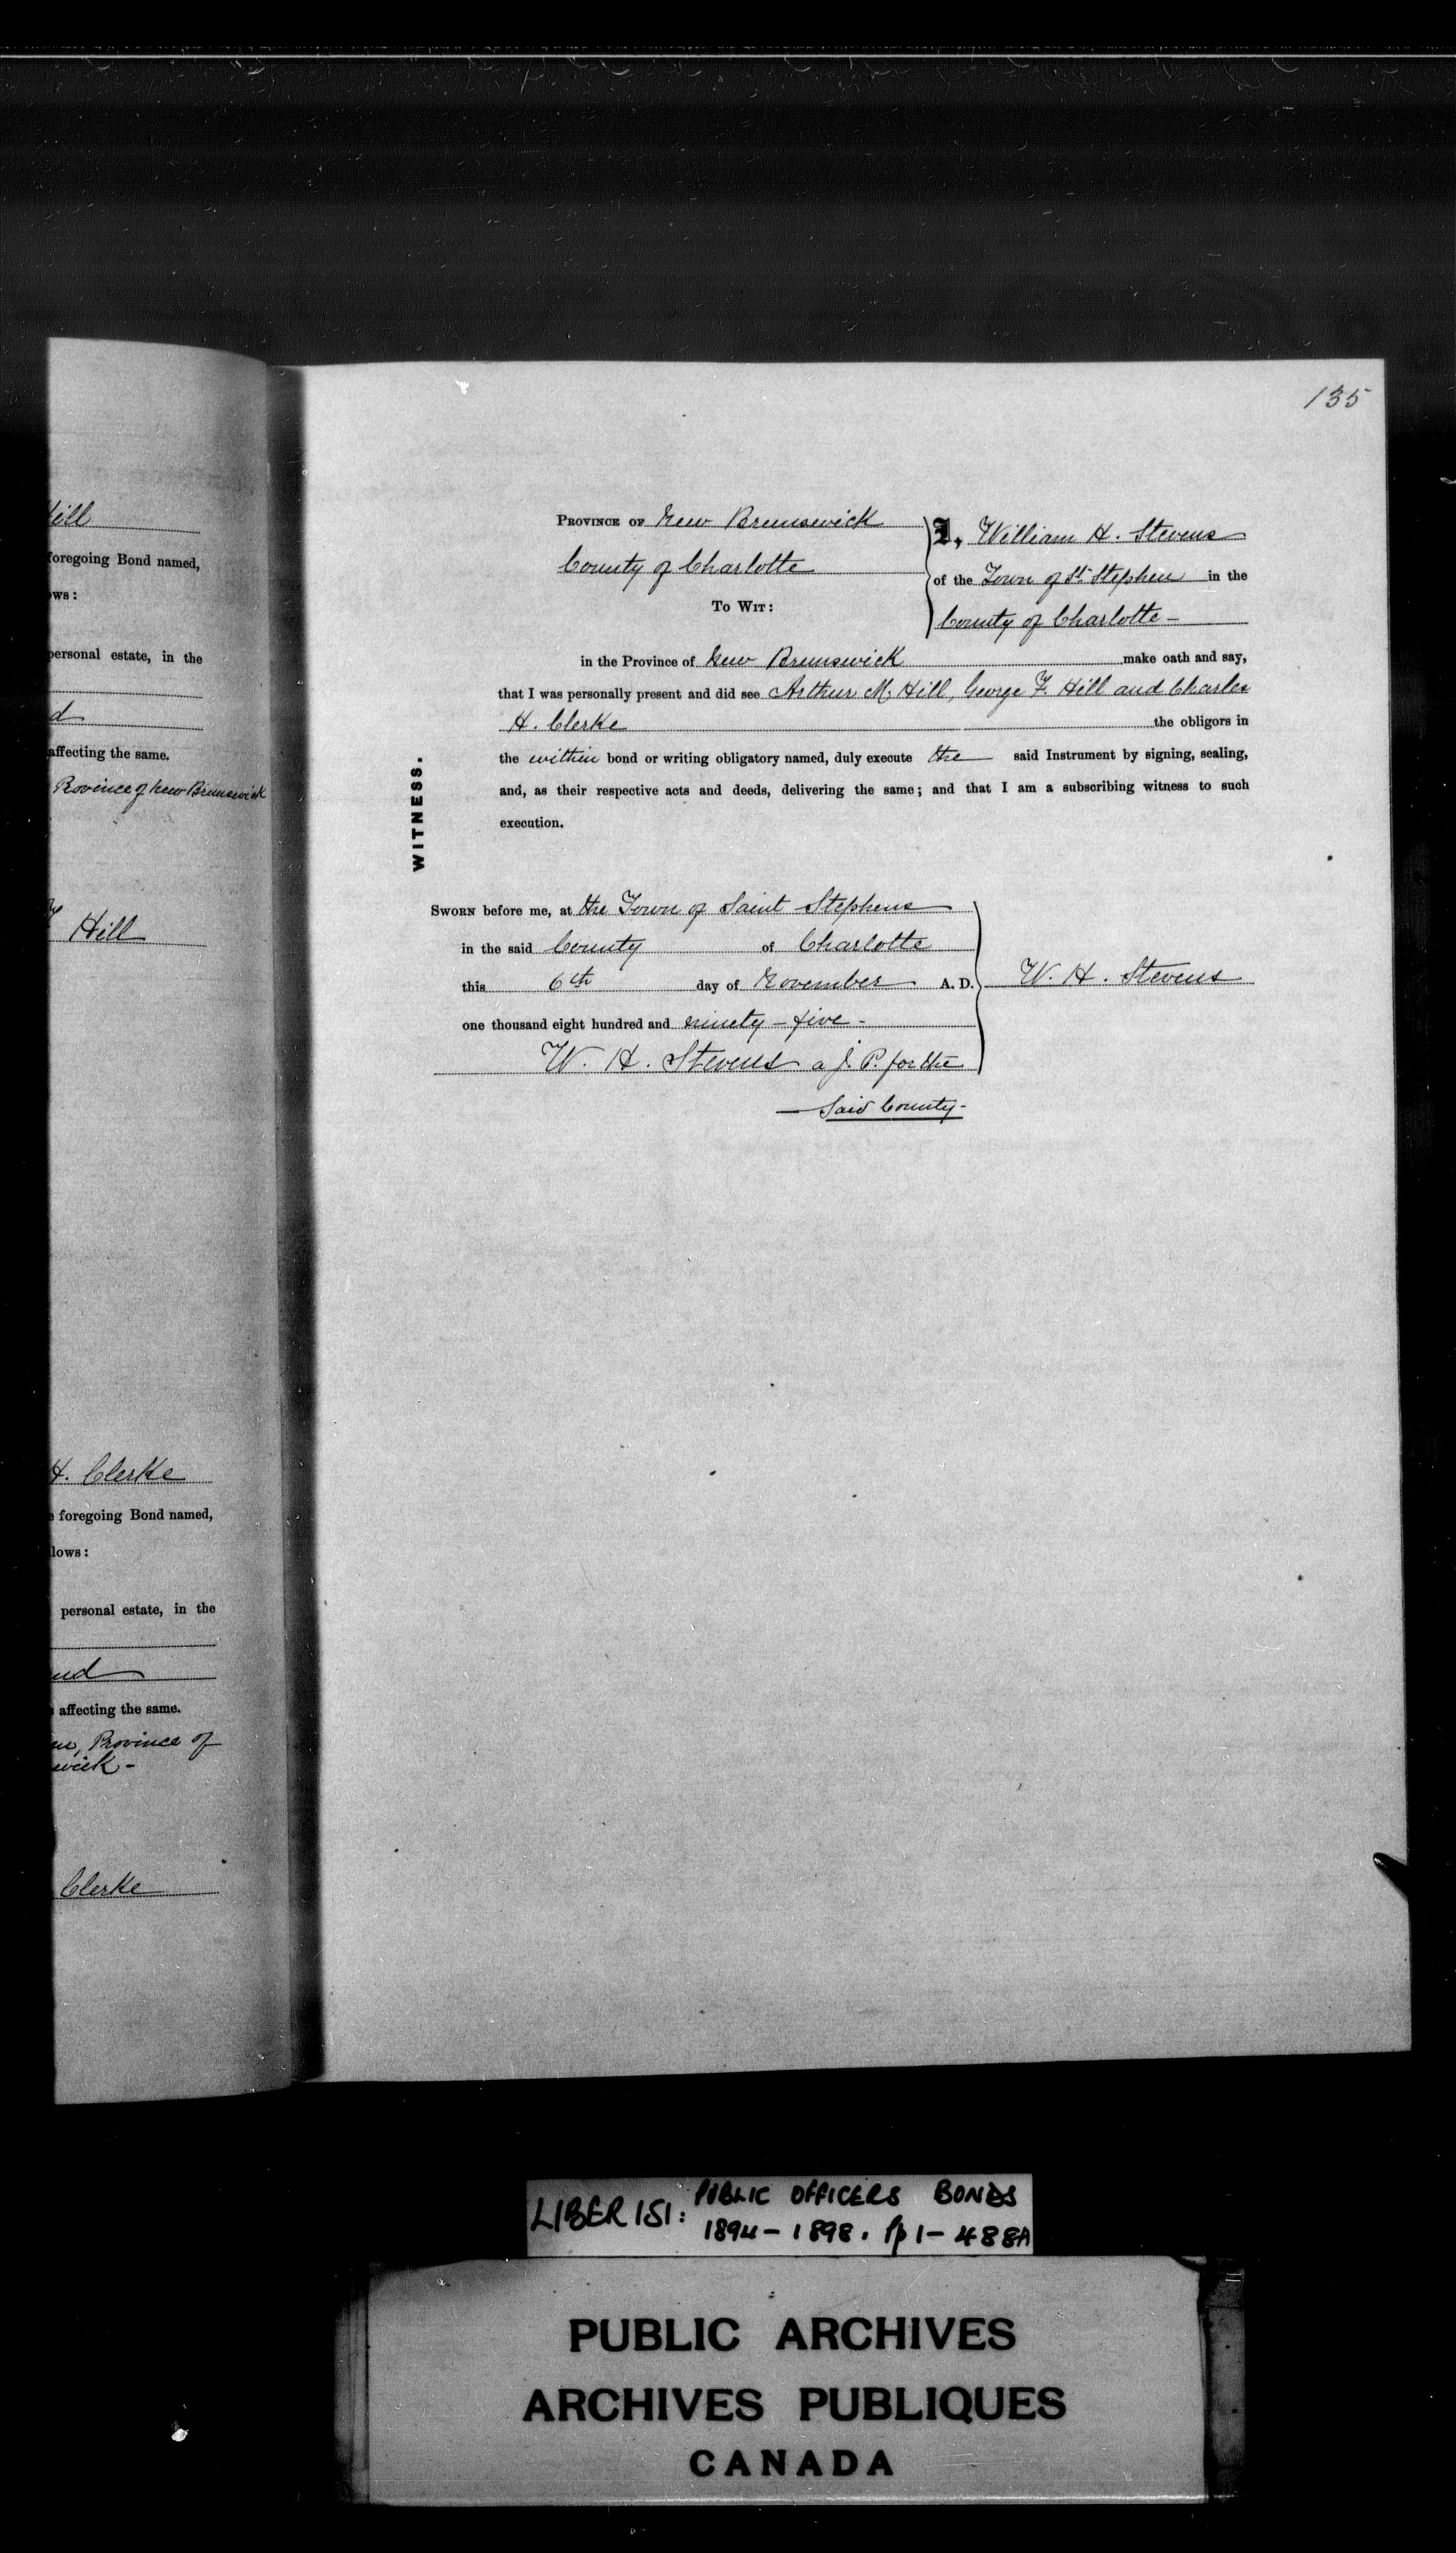 135
Hill
foregoing Bond named,
ws:
personal estate, in the
d
affecting the same.
Province of New Brunswick
Hill
H. Clerke
foregoing Bond named,
lows:
personal estate, in the
and
affecting the same.
Province of
wick -
Clerke
PROVINCE OF New Brunswick
County of Charlotte
TO WIT:
I, William H. Stevens
of the Town of St. Stephen in the
County of Charlotte -
in the Province of New Brunswick make oath and say,
that I was personally present and did see Arthur M. Hill, George F. Hill and Charles
H. Clerke the obligors in
the within bond or writing obligatory named, duly execute the said Instrument by signing, sealing,
and, as their respective acts and deeds, delivering the same; and that I am a subscribing witness to such
execution.
WITNESS.
SWORN before me, at the Town of Saint Stephens
in the said County of Charlotte
this 6th day of November A. D.
one thousand eight hundred and ninety - five -
W. H. Stevens a J. P. for the
- Said County -
W. H. Stevens
LIBER 151: PUBLIC OFFICERS BONDS
1894 - 1898. pp 1 - 488A
PUBLIC ARCHIVES
ARCHIVES PUBLIQUES
CANADA